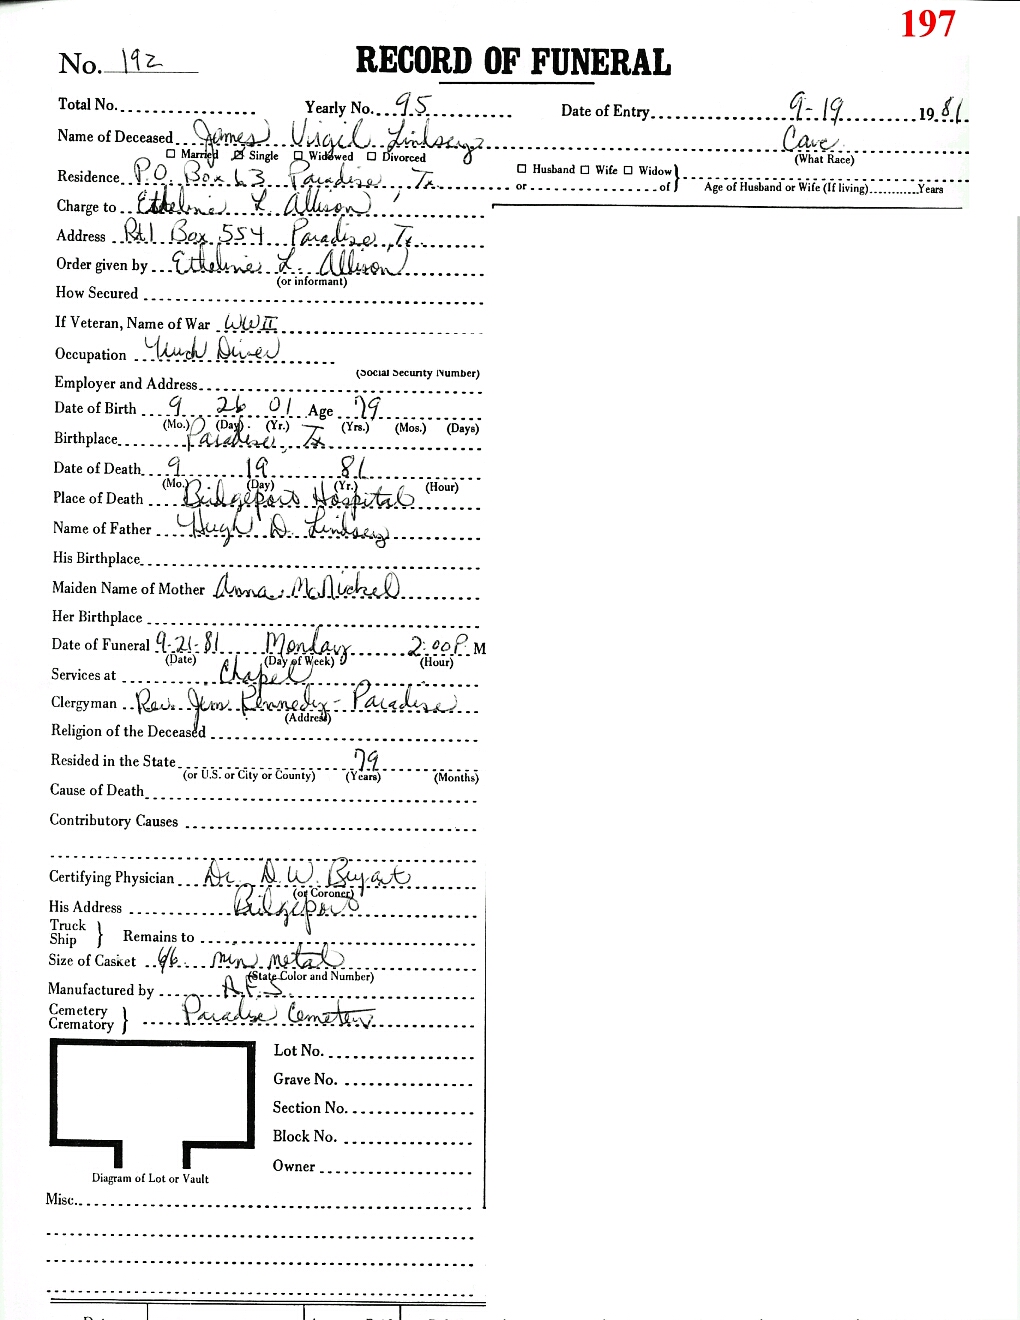 197
No. 192
RECORD OF FUNERAL
Total No. Yearly No. 95 Date of Entry 9-19 1981
Name of Deceased James Virgil Lindsey Cauc
☐ Married ☑ Single ☐ Widowed ☐ Divorced (What Race)
Residence P.O. Box 63 Paradise, Tx ☐ Husband ☐ Wife ☐ Widow
or of Age of Husband or Wife (If living) Years
Charge to Etheline L Allison
Address Rt 1 Box 554 Paradise, Tx.
Order given by Etheline L. Allison
(or informant)
How Secured
If Veteran, Name of War WWII
Occupation Truck Driver
(Social Security Number)
Employer and Address
Date of Birth 9 26 01 Age 79
(Mo.) (Day) (Yr.) (Yrs.) (Mos.) (Days)
Birthplace Paradise, Tx
Date of Death 9 19 81
(Mo.) (Day) (Yr.) (Hour)
Place of Death Bridgeport Hospital
Name of Father Hugh D. Lindsey
His Birthplace
Maiden Name of Mother Anna McNickel
Her Birthplace
Date of Funeral 9-21-81 Monday 2:00 P. M
(Date) (Day of Week) (Hour)
Services at Chapel
Clergyman Rev. Jim Kennedy - Paradise
(Address)
Religion of the Deceased
Resided in the State 79
(or U.S. or City or County) (Years) (Months)
Cause of Death
Contributory Causes
Certifying Physician Dr. D.W. Bryant
(or Coroner)
His Address Bridgeport
Truck
Ship } Remains to
Size of Casket 6/6 metal
(State Color and Number)
Manufactured by A.F.S.
Cemetery
Crematory } Paradise Cemetery
Lot No.
Grave No.
Section No.
Block No.
Owner
Diagram of Lot or Vault
Misc.